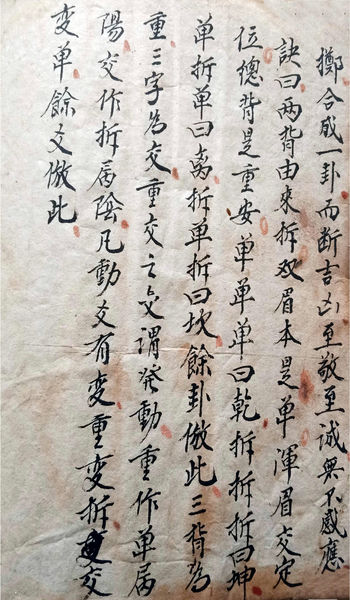 擲合成一卦而断吉凶至敬至誠無不感應
訣曰两背由來拆双眉本是单渾眉交定
位總背是重安单单单曰乾拆拆拆曰坤
单拆单曰离拆单拆曰坎餘卦倣此三背為
重三字為交重交之爻謂発動重作单属
陽交作拆属陰凡動爻有变重变拆交
变单餘爻倣此